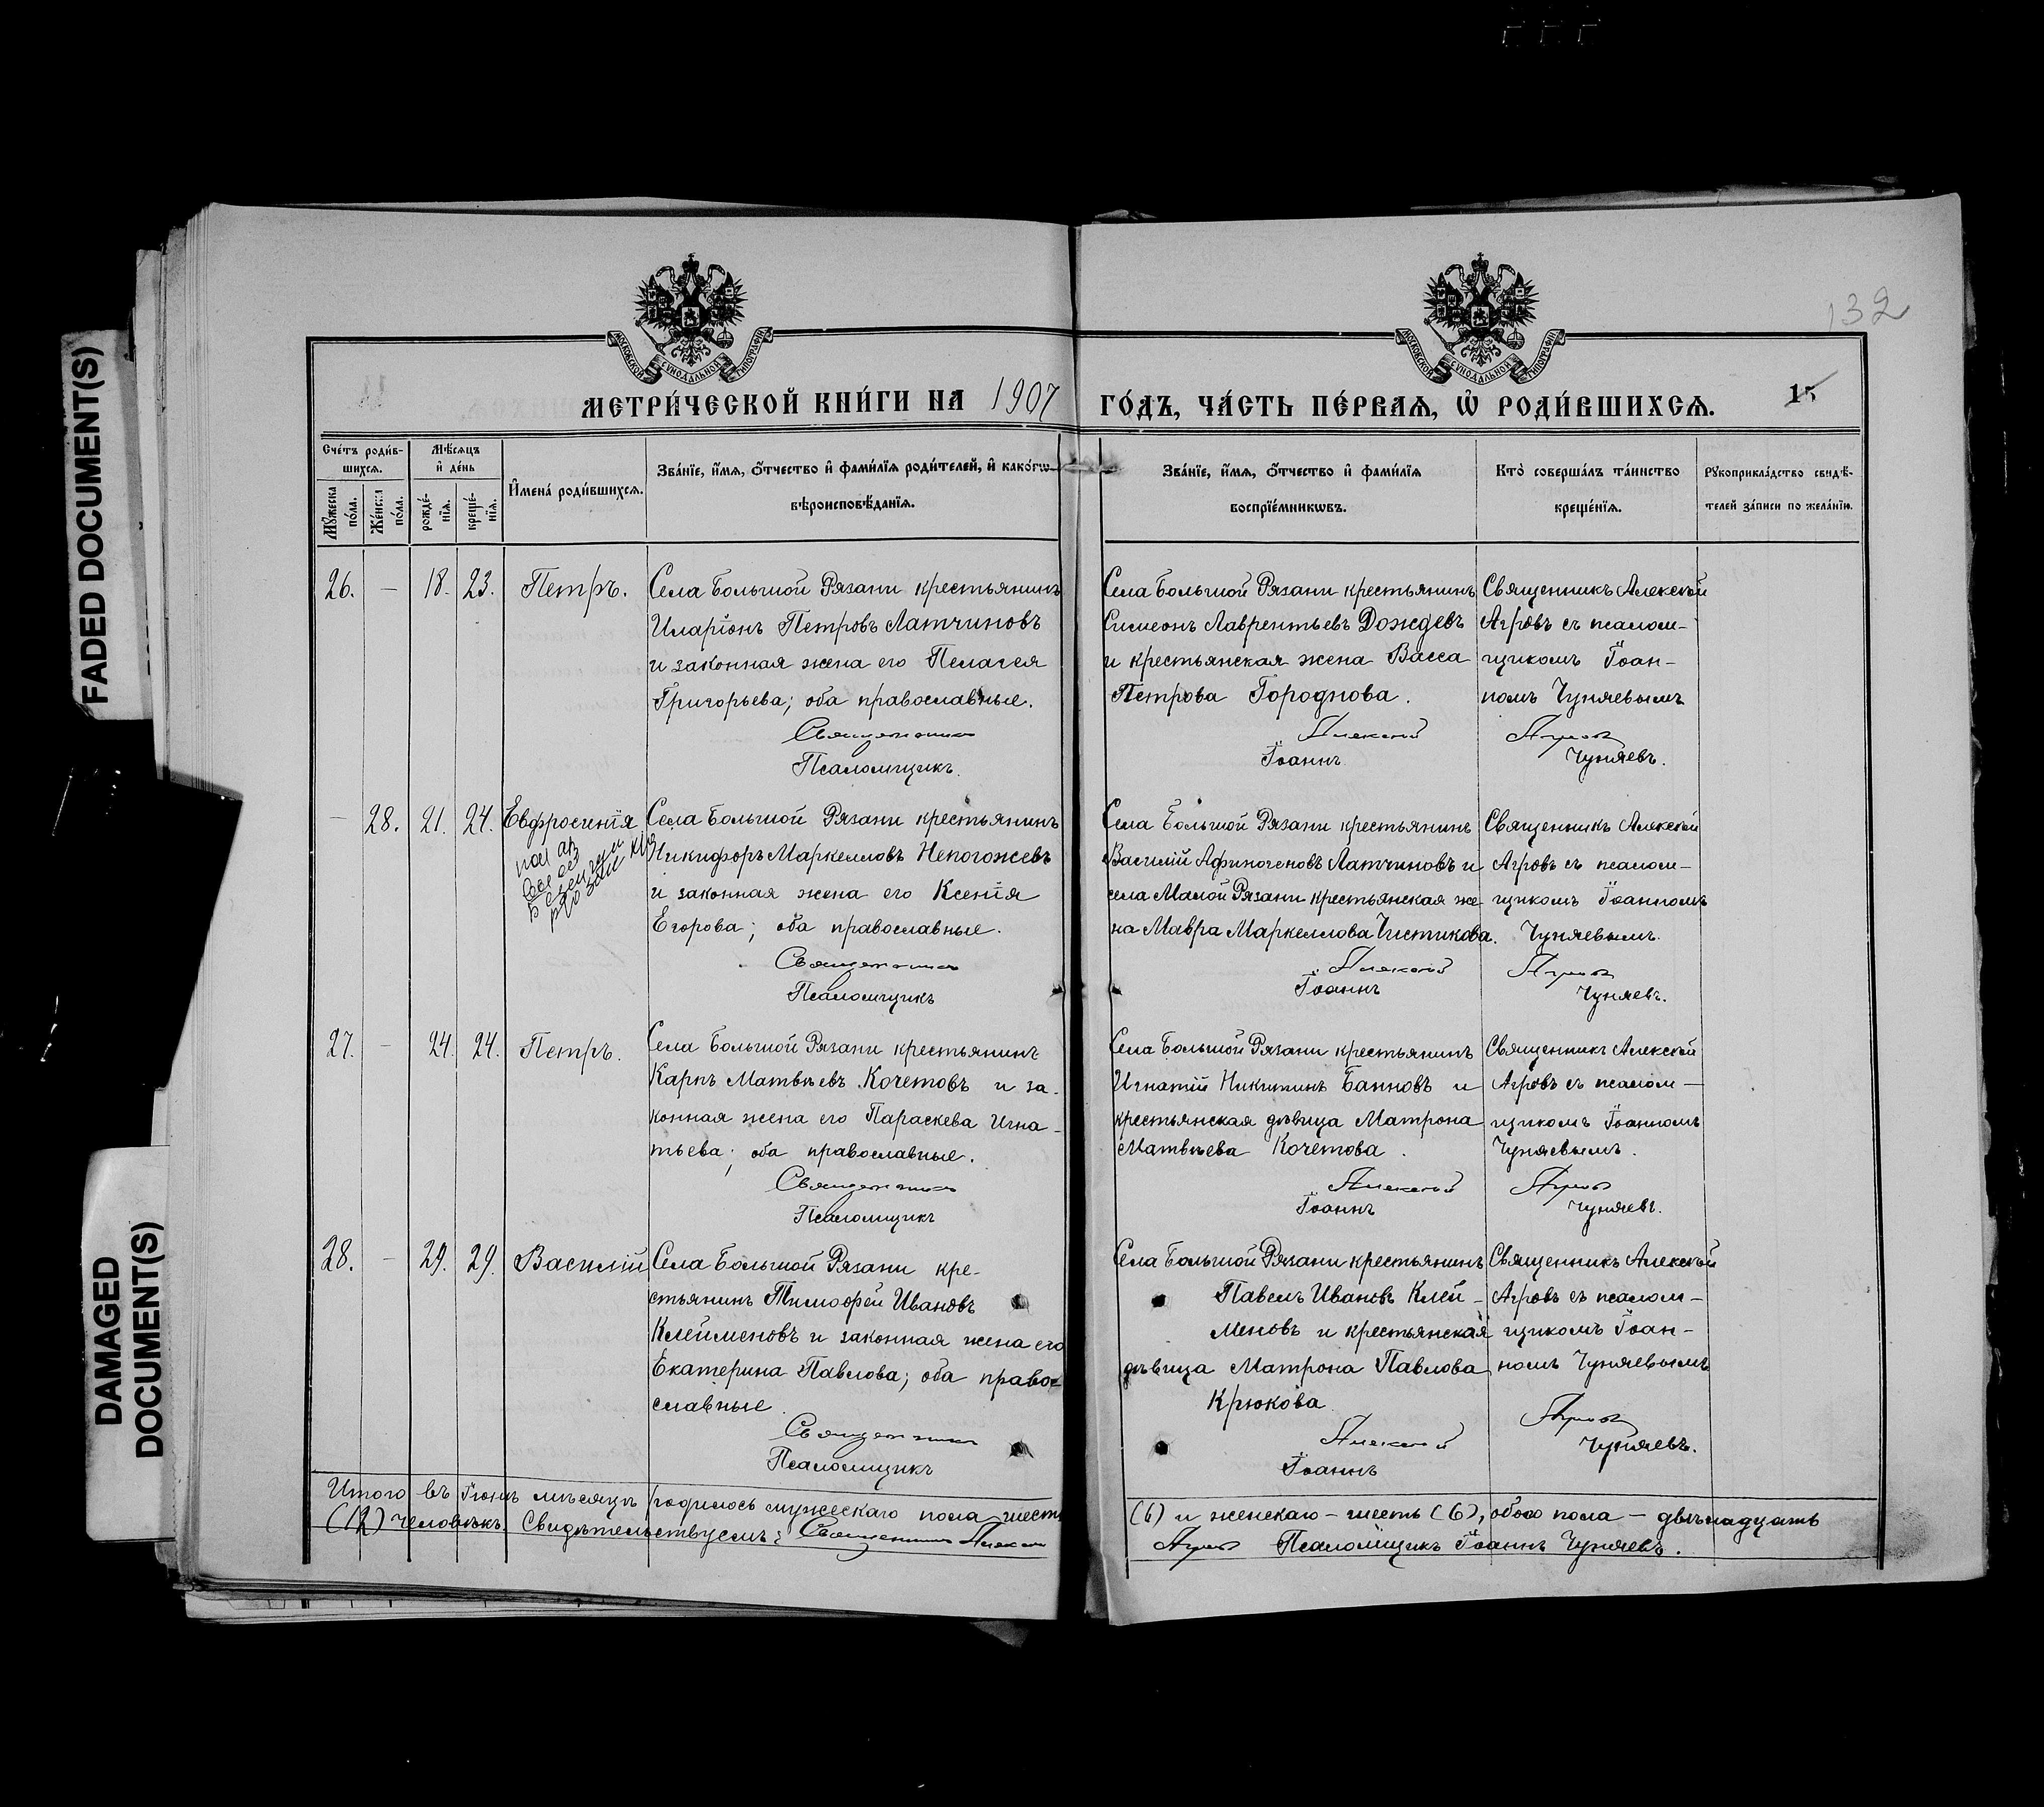 FADED DOCUMENT(S)
DAMAGED
DOCUMENT(S)
132
МОСКОВСКОЙ СѴНОДАЛЬНОЙ ТИПОГРАФІИ
МОСКОВСКОЙ СѴНОДАЛЬНОЙ ТИПОГРАФІИ
МЕТРИ́ЧЕСКОЙ КНИ́ГИ НА 1907 ГО́ДЪ, ЧА́СТЬ ПЕ́РВАѦ, Ѡ҆ РОДИ́ВШИХСѦ.
Сче́тъ роди́в-
шихсѧ.
Мѣ́сѧцъ
и҆ де́нь
Мꙋ́жеска по́ла.
Же́нска по́ла.
рожде́-нїѧ.
креще́-нїѧ.
И҆мена̀ роди́вшихсѧ.
Зва́нїе, и҆́мѧ, ѻ҆́тчество и҆ фами́лїѧ роди́телей, и҆ како́гѡ
вѣроисповѣ́данїѧ.
Зва́нїе, и҆́мѧ, ѻ҆́тчество и҆ фами́лїѧ
воспрїе́мникѡвъ.
Кто̀ соверша́лъ та́инство
креще́нїѧ.
Рꙋкоприкла́дство свидѣ́-
телей за́писи по жела́нїю.
26. — 18. 23. Петръ.
Села Большой Рязани крестьянинъ
Иларіонъ Петровъ Латчиновъ
и законная жена его Пелагея
Григорьева; оба православные.
Священникъ
Псаломщикъ
Села Большой Рязани крестьянинъ
Симеонъ Лаврентьевъ Дождевъ
и крестьянская жена Васса
Петрова Городнова.
Алексій
Іоаннъ
Священникъ Алексѣй
Агровъ съ псалом-
щикомъ Іоан-
номъ Чуняевымъ
Агровъ
Чуняевъ.
— 28. 21. 24. Евфросинія
Села Большой Рязани крестьянинъ
Никифоръ Маркелловъ Непогожевъ
и законная жена его Ксенія
Егорова; оба православные.
Священникъ
Псаломщикъ
Села Большой Рязани крестьянинъ
Василій Афиногеновъ Латчиновъ и
села Малой Рязани крестьянская же-
на Мавра Маркеллова Чистикова.
Алексій
Іоаннъ
Священникъ Алексѣй
Агровъ съ псалом-
щикомъ Іоанномъ
Чуняевымъ.
Агровъ
Чуняевъ.
27. — 24. 24. Петръ.
Села Большой Рязани крестьянинъ
Карпъ Матвѣевъ Кочетовъ и за-
конная жена его Параскева Игна-
тьева; оба православные.
Священникъ
Псаломщикъ
Села Большой Рязани крестьянинъ
Игнатій Никитинъ Банновъ и
крестьянская дѣвица Матрона
Матвѣева Кочетова.
Алексій
Іоаннъ
Священникъ Алексѣй
Агровъ съ псалом-
щикомъ Іоанномъ
Чуняевымъ.
Агровъ
Чуняевъ.
28. — 29. 29. Василій
Села Большой Рязани кре-
стьянинъ Тимофей Ивановъ
Клейменовъ и законная жена его
Екатерина Павлова; оба право-
славные.
Священникъ
Псаломщикъ
Села Большой Рязани крестьянинъ
Павелъ Ивановъ Клей-
меновъ и крестьянская
дѣвица Матрона Павлова
Крюкова
Алексій
Іоаннъ
Священникъ Алексѣй
Агровъ съ псалом-
щикомъ Іоан-
номъ Чуняевымъ
Агровъ
Чуняевъ.
Итого въ Іюнѣ мѣсяцѣ родилось мужескаго пола шесть (6) и женскаго — шесть (6), обоего пола — двѣнадцать
(12) человѣкъ. Свидѣтельствуемъ: Священникъ Алексій Агровъ Псаломщикъ Іоаннъ Чуняевъ.